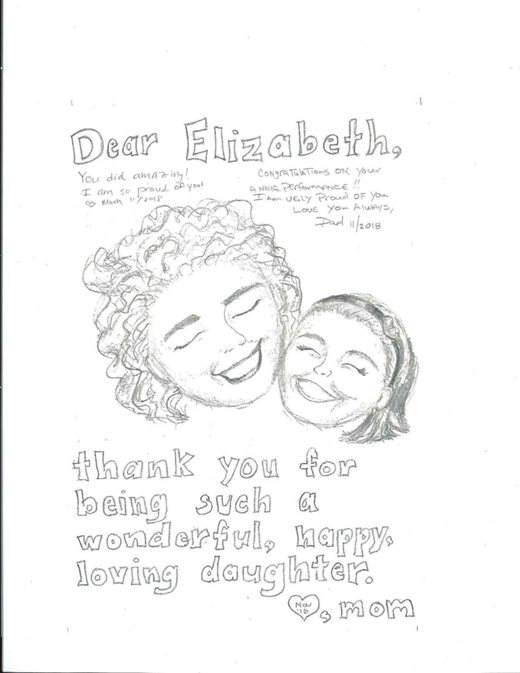 Dear Elizabeth,
You did amazing!
I am so proud of you!
Mom 11/2018
CONGRATULTIONS ON YOUR
ANNIE PERFORMANCE!!
I AM VERY PROUD OF YOU
LOVE YOU ALWAYS,
Dad 11/2018
thank you for
being such a
wonderful, happy,
loving daughter.
Nov
18
, mom